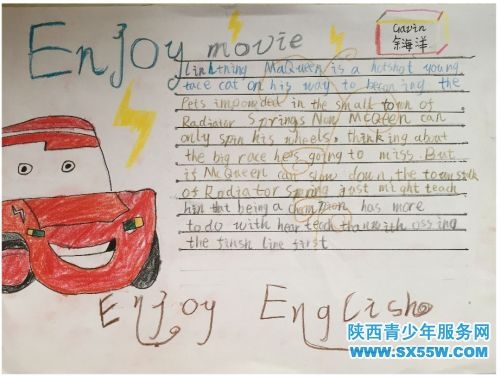 Enjoy movie
Gavin
余海洋
linhtning MaQueen is a hotshot young
race cat on his way to becoming the
Pets impounded in the small town of
Radiator Springs Now McQeen can
only spin his wheels, thinking about
the big race he's going to miss. But
if McQueen can slow down, the town
of Radiator Spring just might teach
him that being a champion has more
to do with than with ossing
the finsh line first
Enjoy English
陕西青少年服务网
www.sx55w.com